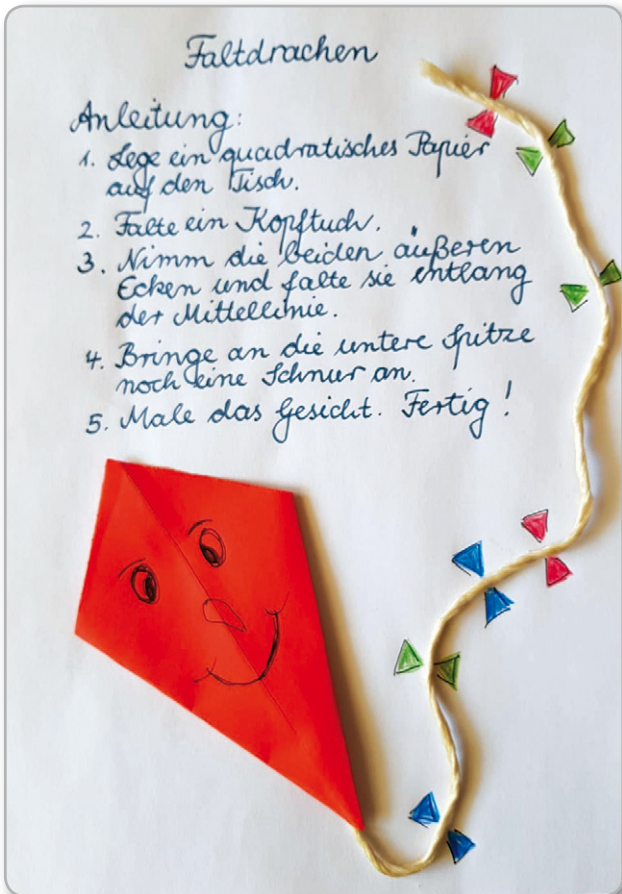 Faltdrachen
Anleitung:
1. Lege ein quadratisches Papier
auf den Tisch.
2. Falte ein Kopftuch.
3. Nimm die beiden äußeren
Ecken und falte sie entlang
der Mittellinie.
4. Bringe an die untere Spitze
noch eine Schnur an.
5. Male das Gesicht. Fertig!